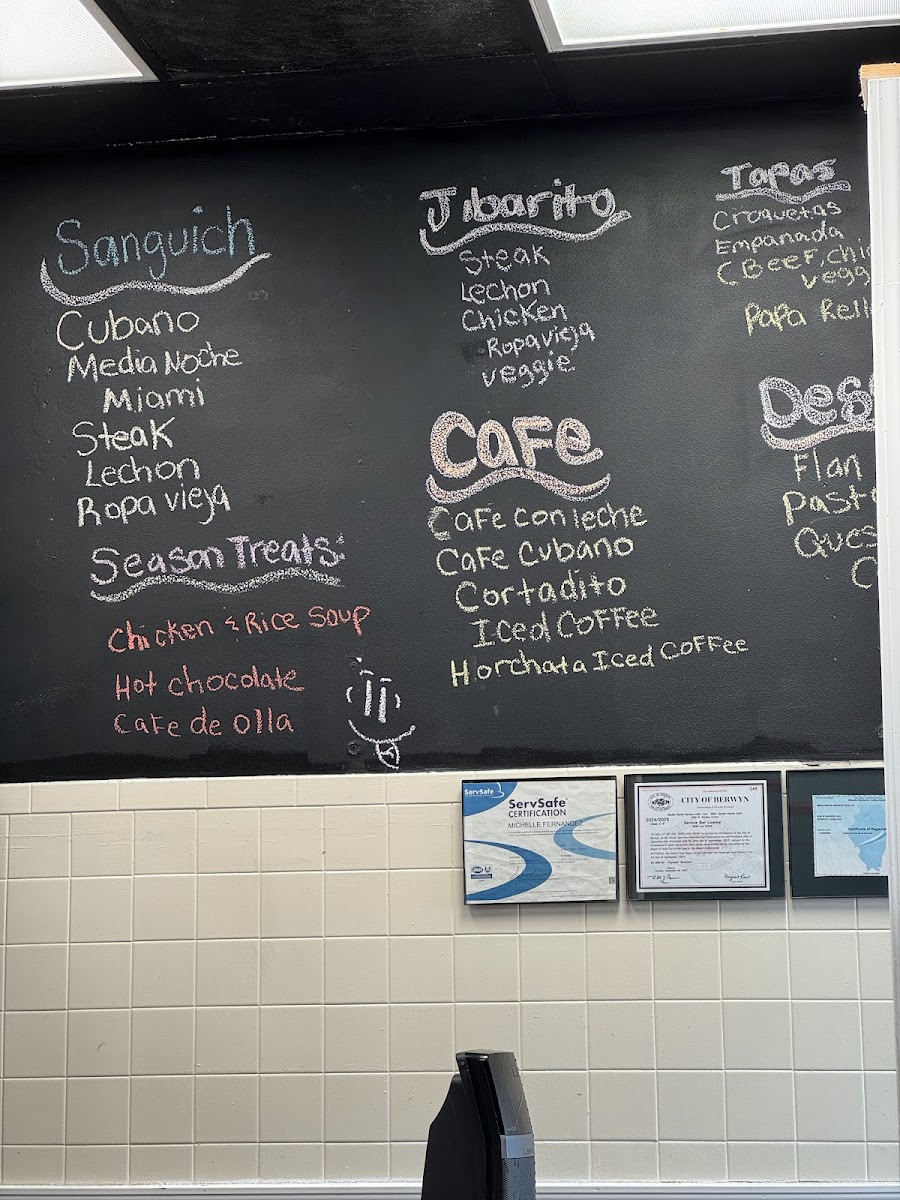 Sanguich
Cubano
Media Noche
Miami
Steak
Lechon
Ropa vieja
Season Treats:
Chicken & Rice Soup
Hot chocolate
Cafe de olla
Jibarito
Steak
Lechon
Chicken
Ropa vieja
veggie
Cafe
Cafe con leche
Cafe Cubano
Cortadito
Iced Coffee
Horchata Iced Coffee
Tapas
Croquetas
Empanada
(Beef, Chi
vegg
Papa Rell
Des
Flan
Past
Ques
C
ServSafe
ServSafe
CERTIFICATION
MICHELLE FERNANDEZ
CITY OF BERWYN
2024/2025
Service Bar License
Certificate of Registra